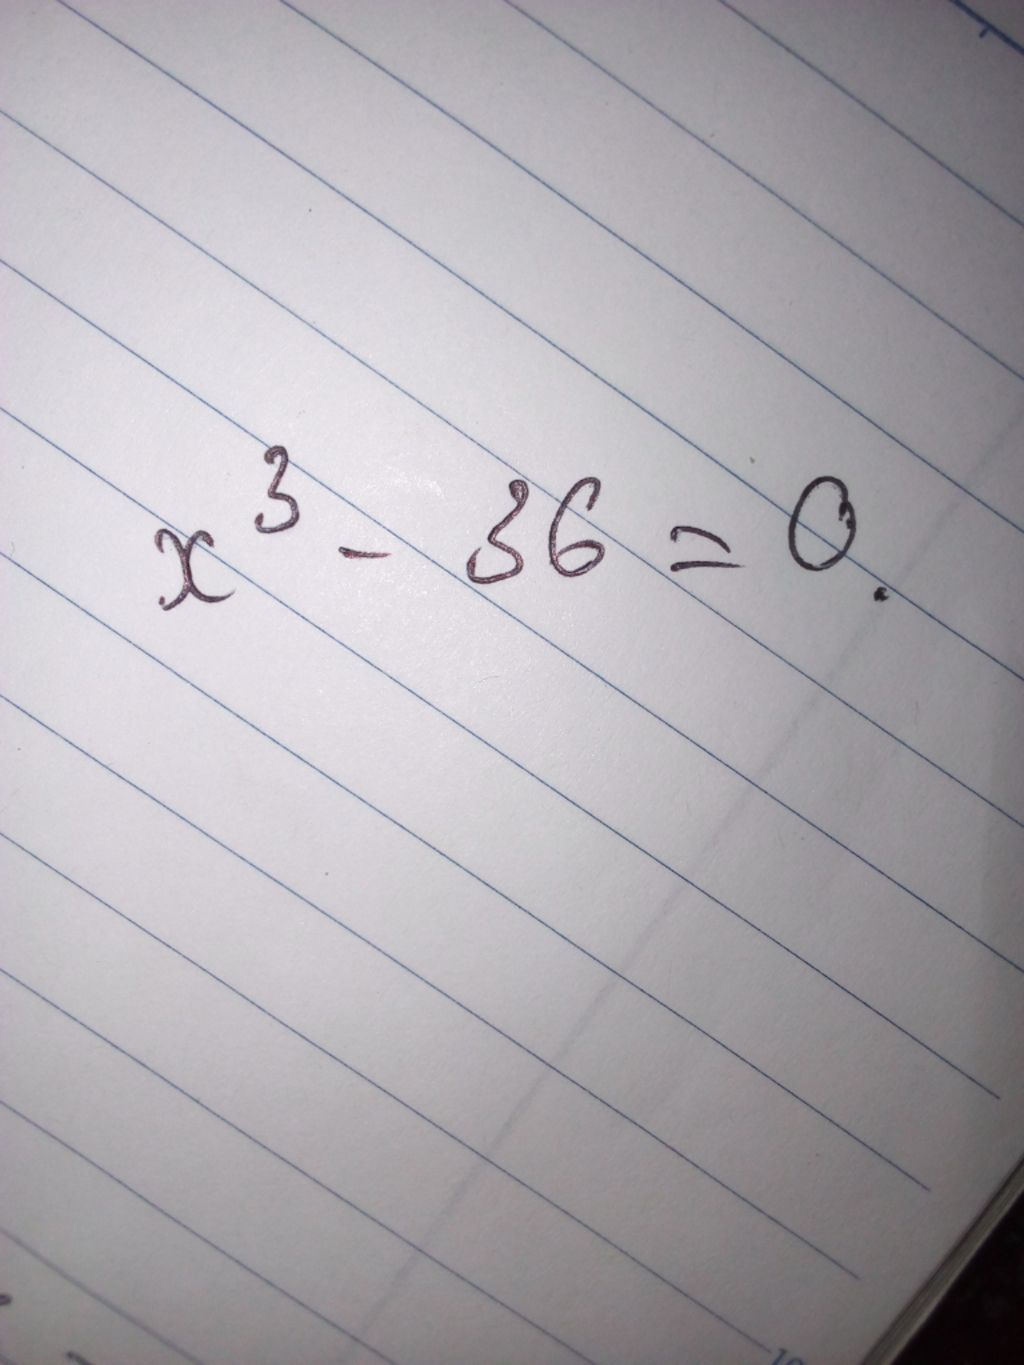 x³ - 36 = 0.